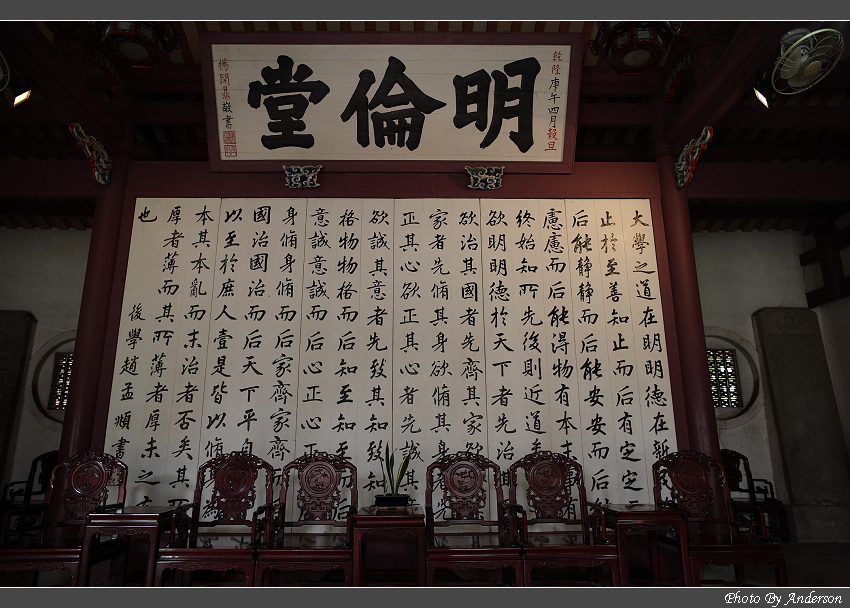 明倫堂
乾隆庚午四月穀旦
楊開鼎敬書
大學之道在明明德在新
止於至善知止而后有定定
后能静静而后能安安而后
慮慮而后能得物有本末
終始知所先後則近道矣
欲明明德於天下者先治
欲治其國者先齊其家欲
家者先脩其身欲脩其
正其心欲正其心者先誠
欲誠其意者先致其知致
格物物格而后知至知至
意誠意誠而后心正心正
身脩身脩而后家齊家齊
國治國治而后天下平自
以至於庶人壹是皆以脩
本其本亂而末治者否矣其
厚者薄而其所薄者厚未之
也
後學趙孟頫書
Photo By Anderson